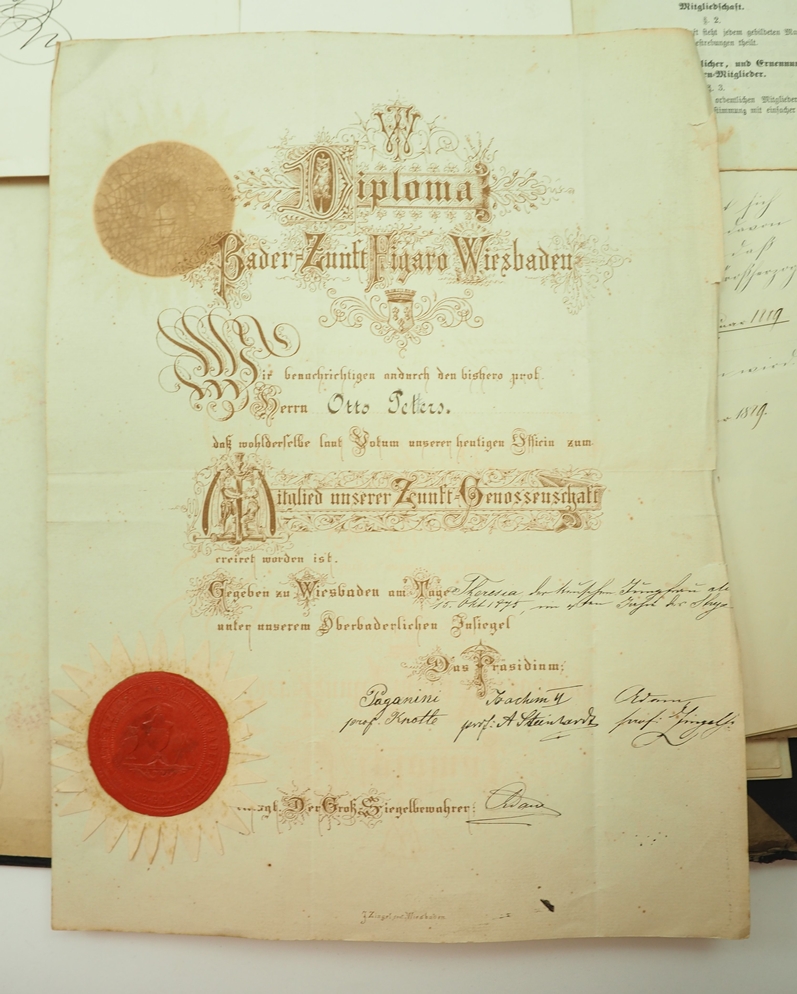 Mitgliedschaft.
§. 2.
steht jedem gebildeten
Bestrebungen theilt.
und Ernennung
Mitglieder.
§. 3.
ordentlichen Mitglieder
Stimmung mit einfacher
sich
davon
daß
1819
wird
1819.
W
Diploma
Bader-Zunft Figaro Wiesbaden
Wir benachrichtigen andurch den bishero prof.
Herrn Otto Peters.
daß wohlderselbe laut Votum unserer heutigen Officin zum
Mitglied unserer Zunft-Genossenschaft
creiret worden ist.
Gegeben zu Wiesbaden am Tage Theresia, der keuschen Jungfrau
15. Okt. 1875, im Jahre der
unter unserem Oberbaderlichen Insiegel
Das Präsidium:
Paganini Joachim II Adam
prof. Knotte prof: A. Steinhardt prof:
Der Groß-Siegelbewahrer: Adam
Wiesbaden